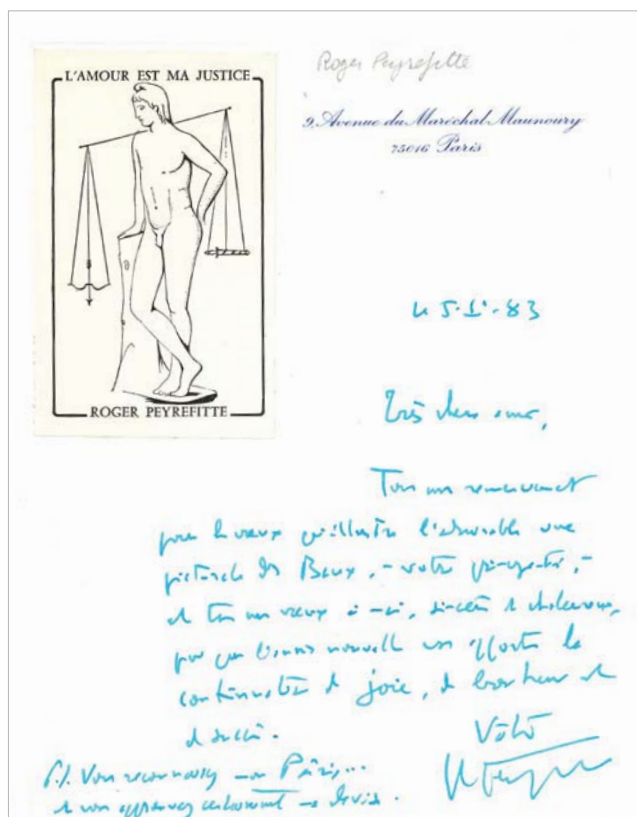 L'AMOUR EST MA JUSTICE
ROGER PEYREFITTE
Roger Peyrefitte
9, Avenue du Maréchal Maunoury
75016 Paris
83
Très chers amis,
Tous mes remerciements
pour les vœux qu'illustre l'admirable vue
picturale des Baux, - votre
et tous mes vœux à moi, sincères et chaleureux,
pour que l'année nouvelle vous apporte la
continuation de joie, de bonheur et
de succès.
Vôtre
P.S. Vous reconnaissez mon Pâris...
et vous approuvez certainement ma devise.